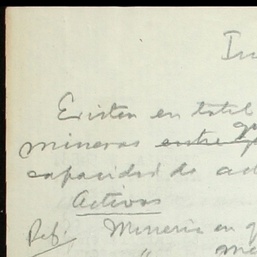 In
Existen en total
mineras entre
capacidad de ad
Activos
Ref. Mineria en q
" Me